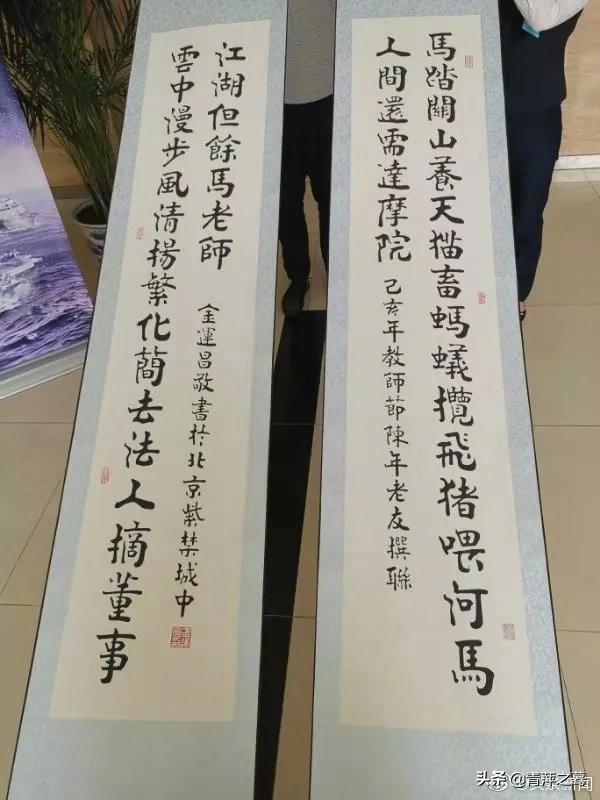 馬踏關山養天猫畜螞蟻攬飛猪喂河馬
人間還需達摩院
己亥年教師節陳年老友撰聯
雲中漫步風清揚繁化簡去法人摘董事
江湖但餘馬老師
金運昌敬書於北京紫禁城中
头条 @青萍之暮